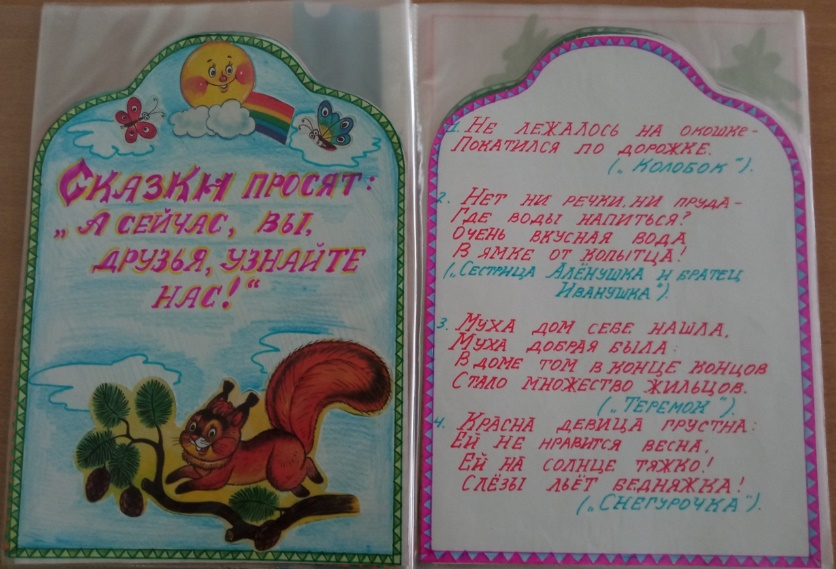 Сказки просят:
„А сейчас, вы,
друзья, узнайте
нас!“
1. Не лежалось на окошке-
Покатился по дорожке.
(„Колобок“).
2. Нет ни речки, ни пруда-
Где воды напиться?
Очень вкусная вода
В ямке от копытца!
(„Сестрица Алёнушка и братец
Иванушка“).
3. Муха дом себе нашла,
Муха добрая была:
В доме том в конце концов
Стало множество жильцов.
(„Теремок“).
4. Красна девица грустна:
Ей не нравится весна,
Ей на солнце тяжко!
Слёзы льёт бедняжка!
(„Снегурочка“).